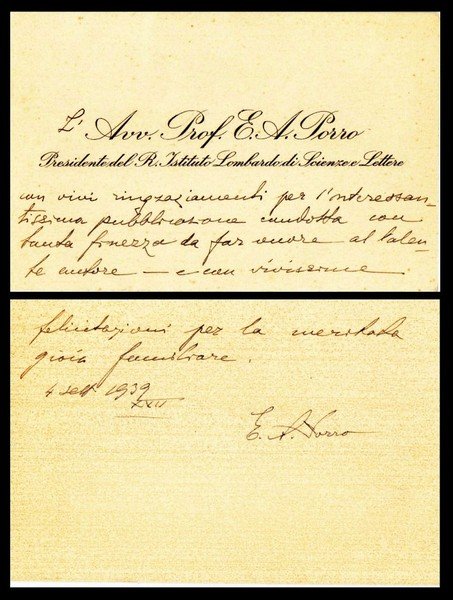 L' Avv. Prof. E. A. Porro
Presidente del R. Istituto Lombardo di Scienze e Lettere
con vivi ringraziamenti per l'interessan-
tissima pubblicazione condotta con
tanta finezza da far onore al valen-
te autore — e con vivissime
felicitazioni per la meritata
gioia familiare.
4 sett 1939
XVII
E. A. Porro